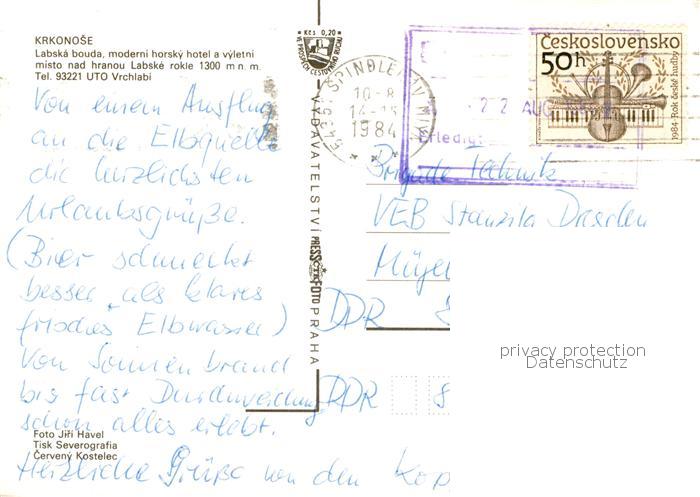 KRKONOŠE
Labská bouda, moderní horský hotel a výletní
místo nad hranou Labské rokle 1300 m n. m.
Tel. 93221 UTO Vrchlabí
Von einem Ausflug
an die Elbquelle
die herzlichsten
Urlaubsgrüße.
(Bier schmeckt
besser als klares
frisches Elbwasser)
Von Sonnenbrand
bis fast Durchweichung
schon alles erlebt.
Herzliche Grüße von den
Foto Jiří Havel
Tisk Severografia
Červený Kostelec
Kčs 0,20
VE PROSPĚCH CESTOVNÍHO RUCHU
VYDAVATELSTVÍ PRESSFOTO PRAHA
543 51 ŠPINDLERŮV MLÝN
10.-8.
1984
22. AUG.
Erledigt
Československo
50h
1984 Rok české hudby
Brigade Technik
VEB Stanzila Dresden
DDR 8
DDR 8
privacy protection
Datenschutz